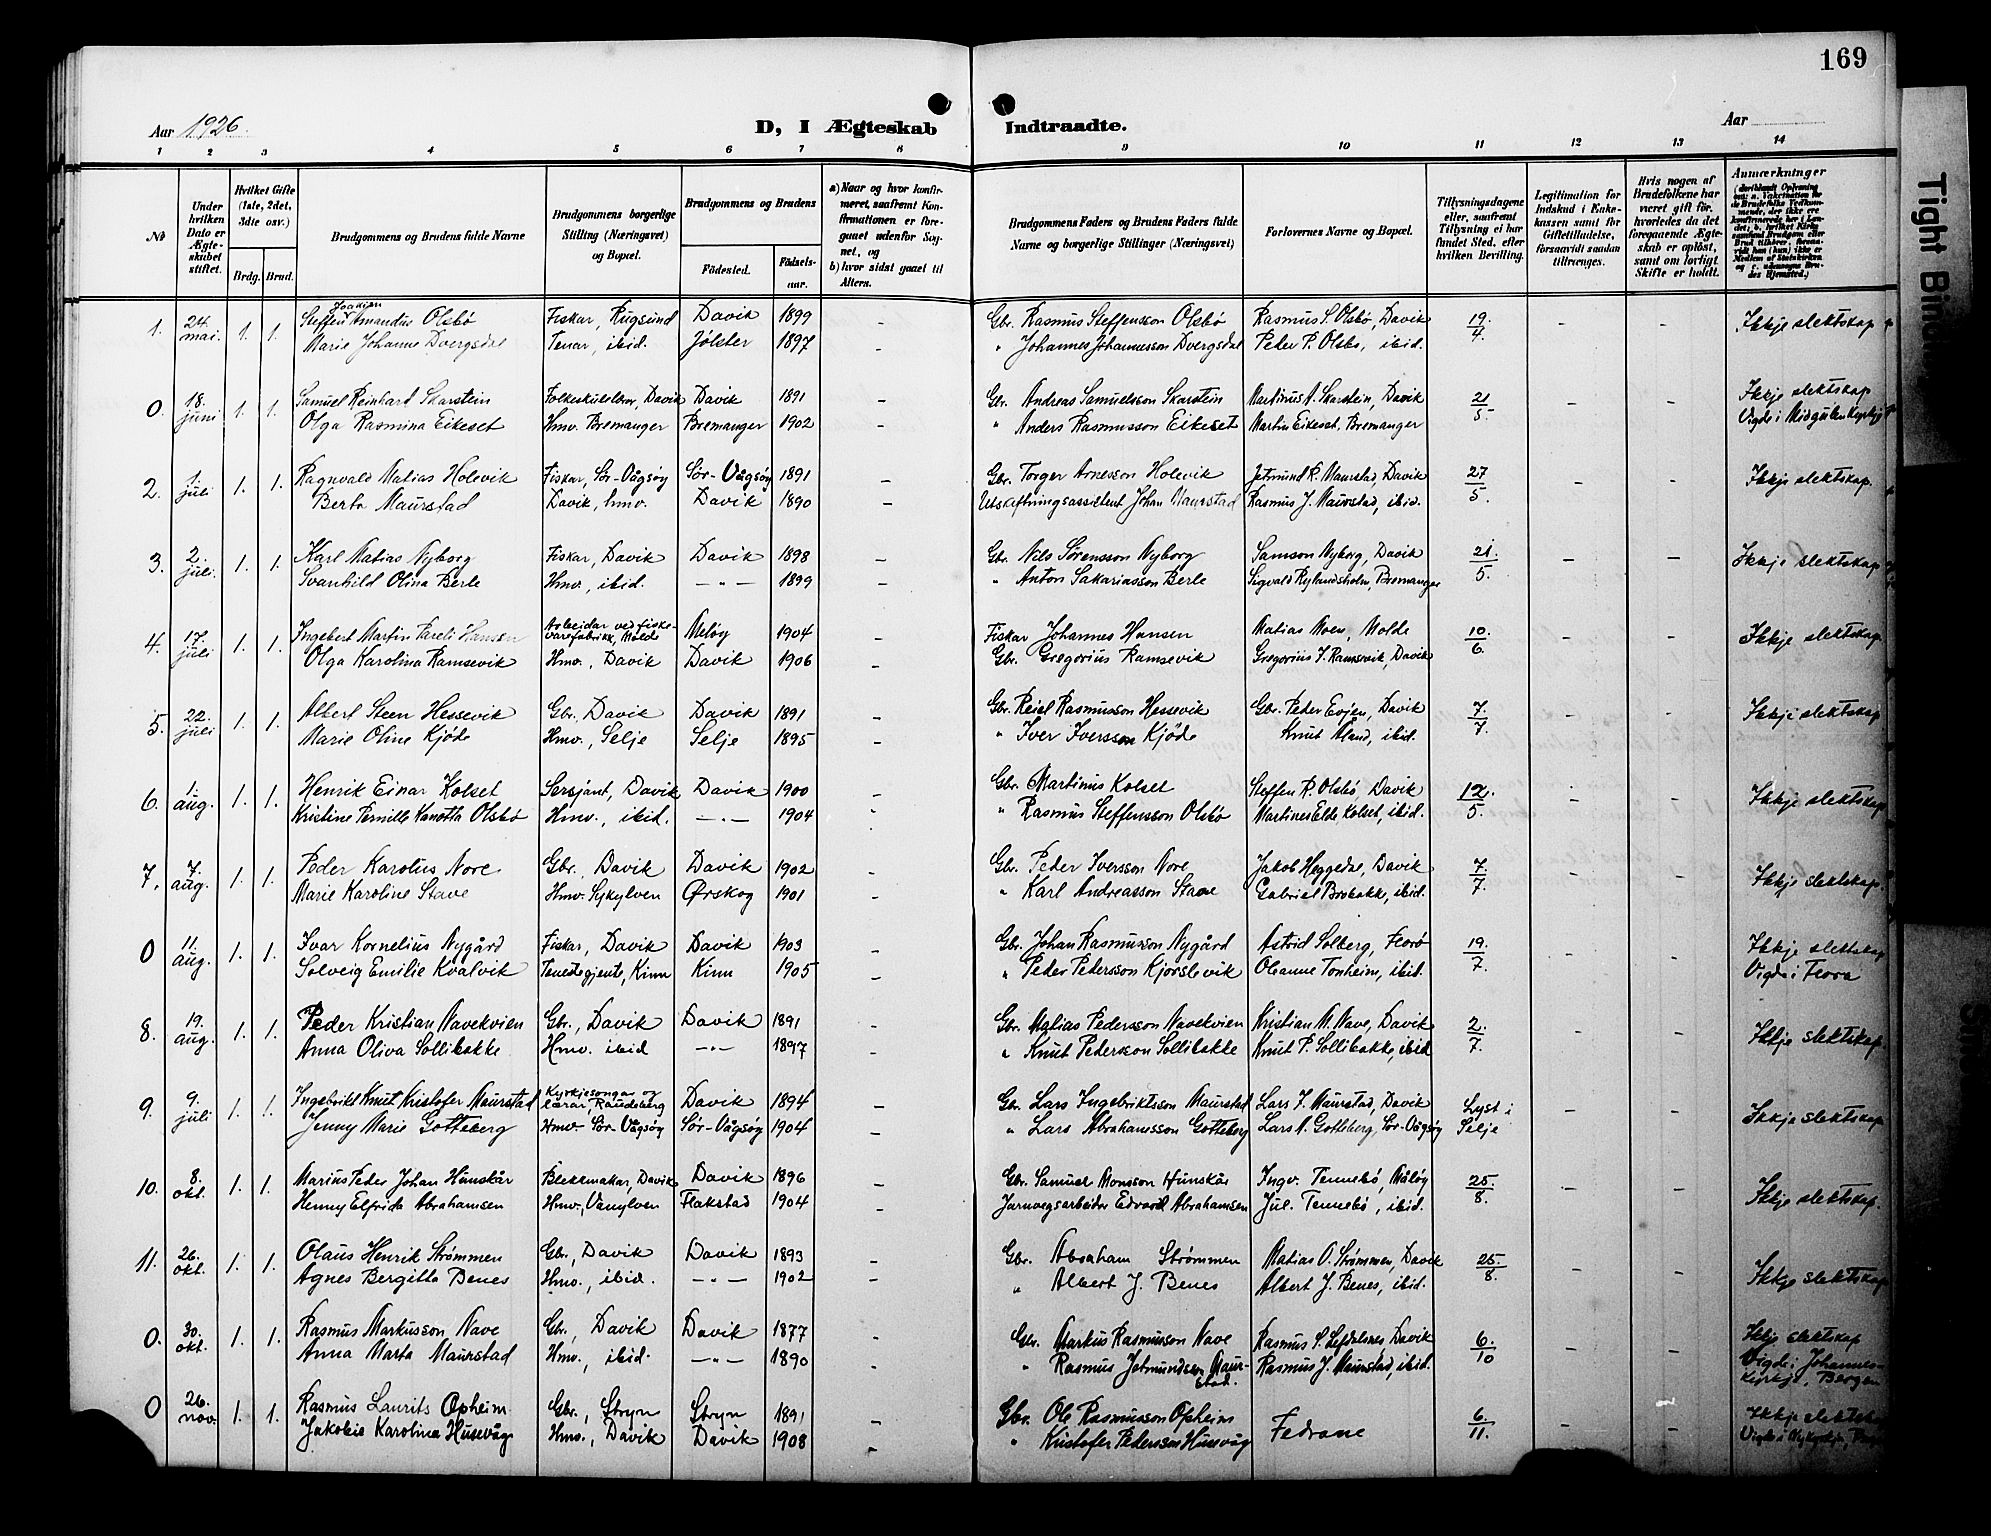 169
Aar 1926.
D, I Ægteskab Indtraadte.
Aar
1 2 3 4 5 6 7 8 9 10 11 12 13 14
No
Under hvilken Dato er Ægteskabet stiftet.
Hvilket Gifte (1ste, 2det, 3die osv.)
Brdg. Brud.
Brudgommens og Brudens fulde Navne
Brudgommens borgerlige Stilling (Næringsvei) og Bopæl.
Brudgommens og Brudens
Fødested. Fødselsaar.
a) Naar og hvor konfirmeret, saafremt Konfirmationen er foregaaet udenfor Sognet, og
b) hvor sidst gaaet til Alters.
Brudgommens Faders og Brudens Faders fulde Navne og borgerlige Stillinger (Næringsvei)
Forlovernes Navne og Bopæl.
Tillysningsdagene eller, saafremt Tillysning ei har fundet Sted, efter hvilken Bevilling.
Legitimation for Indskud i Enkekassen samt for Giftetilladelse, forsaavidt saadan tiltrænges.
Hvis nogen af Brudefolkene har været gift før, hvorledes da det foregaaende Ægteskab er opløst, samt om lovligt Skifte er holdt.
Anmærkninger
1. 24. mai. 1. 1. Steffen Joakim Amandus Olsbø Fiskar, Rugsund Davik 1899 - Gbr. Rasmus Steffensson Olsbø Rasmus S. Olsbø, Davik 19./4. - - Ikkje slektskap
Marie Johanne Dvergsdal Tenar, ibid. Jølster 1897 - " Johannes Johannesson Dvergsdal Peder P. Olsbø, ibid.
0. 18. juni 1. 1. Samuel Reinhard Skarstein Folkeskulelærar, Davik Davik 1891 - Gbr. Andreas Samuelsson Skarstein Martinus A. Skarstein, Davik 21/5. - - Ikkje slektskap
Olga Rasmina Eikeset Hmv. Bremanger Bremanger 1902 - " Anders Rasmusson Eikeset Martin Eikeset, Bremanger Vigde i Midgulen
2. 1. juli 1. 1. Ragnvald Matias Holevik Fiskar, Sør-Vågsøy Sør-Vågsøy 1891 - Gbr. Torger Arnesson Holevik Jetmund R. Maurstad, Davik 27/5. - - Ikkje slektskap.
Berta Maurstad Davik, hmv. Davik 1890 - Utskiftningsassistent Johan Maurstad Rasmus J. Maurstad, ibid.
3. 2. juli. 1. 1. Karl Matias Nyborg Fiskar, Davik Davik 1898 - Gbr. Nils Sørensson Nyborg Samson Nyborg, Davik 21/5. - - Ikkje slektskap
Svanhild Olina Berle Hmv., ibid. -"- 1899 " Anton Sakariasson Berle Sigvald Rylandsholm, Bremanger
4. 17. juli 1. 1. Ingebert Martin Pareli Hansen Arbeidar ved fiskevarefabrikk, Molde Meløy 1904 - Fiskar Johannes Hansen Matias Moen, Molde 10./6. - - Ikkje slektskap.
Olga Karolina Ramsevik Hmv., Davik Davik 1906 - Gbr. Gregorius Ramsevik Gregorius J. Ramsevik, Davik
5. 22. juli 1. 1. Albert Steen Hessevik Gbr., Davik Davik 1891 - Gbr. Reiel Rasmusson Hessevik Gbr. Peder Evjen, Davik 7./7. - - Ikkje slektskap.
Marie Oline Kjøde Hmv., Selje Selje 1895 - " Iver Iversson Kjøde Knut Aland, ibid.
6. 1. aug. 1. 1. Henrik Einar Kolset Sersjant, Davik Davik 1900 - Gbr. Martinus Kolset Steffen R. Olsbø, Davik 12./5. - - Ikkje slektskap
Kristine Pernille Olsbø Hmv., ibid. -"- 1904 " Rasmus Steffensson Olsbø Martines Elde Kolset, ibid.
7. 7. aug. 1. 1. Peder Karolus Nore Gbr., Davik Davik 1902 - Gbr. Peder Iversson Nore Jakob Heggedal, Davik 7./7. - - Ikkje slektskap.
Marie Karoline Stave Hmv. Sykylven Ørskog 1901 - " Karl Andreasson Stave Gabriel Brobakke, ibid.
0 11. aug. 1. 1. Ivar Kornelius Nygård Fiskar, Davik Davik 1903 - Gbr. Johan Rasmusson Nygård Astrid Solberg, Florø 19./7. - - Ikkje slektskap
Solveig Emilie Kvalvik Tenestegjente, Kinn Kinn 1905 - " Peder Pedersson Kjorslevik Oleanne Tonheim, ibid. Vigde i Flora
8. 19. aug. 1. 1. Peder Kristian Navekvien Gbr., Davik Davik 1891 - Gbr. Matias Pedersson Navekvien Kristian M. Nave, Davik 2./7. - - Ikkje slektskap.
Anna Oliva Sollibakke Hmv. ibid -"- 1897 - " Knut Pedersson Sollibakke Knut P. Sollibakke, ibid
9. 9. juli 1. 1. Ingebrikt Knut Kristofer Maurstad Kyrkjesongar og lærar Raudeberg Davik 1894 - Gbr. Lars Ingebriktsson Maurstad Lars J. Maurstad, Davik Lyst i Selje - - Ikkje slektskap
Jenny Marie Gotteberg Hmv. Sør-Vågsøy Sør-Vågsøy 1904 - " Lars Abrahamsson Gotteberg Lars A. Gotteberg, Sør-Vågsøy
10. 8. okt. 1. 1. Marius Peder Johan Hunskår Blekkmakar, Davik Davik 1896 - Gbr. Samuel Monsson Hunskår Ingv. Tennebø, Måløy 25./8. - - Ikkje slektskap.
Henny Elfrida Abrahamsen Hmv., Vanylven Flakstad 1904 - Jarnvegsarbeider Edvard Abrahamsen Jul. Tennebø, ibid.
11. 26. okt. 1. 1. Olaus Henrik Strømmen Gbr., Davik Davik 1893 - Gbr. Abraham Strømmen Matias O. Strømmen, Davik 25./8. - - Ikkje slektskap
Agnes Bergitta Benes Hmv., ibid. -"- 1902 - " Albert J. Benes Albert J. Benes, ibid.
0. 30. okt. 1. 1. Rasmus Markusson Nave Gbr., Davik Davik 1877 - Gbr. Markus Rasmusson Nave Rasmus S. Lefdalsnes Davik 6./10 - - Ikkje slektskap
Anna Marta Maurstad Hmv., ibid. -"- 1890 - " Rasmus Jetmundson Maurstad. Rasmus J. Maurstad, ibid. Vigde i Johanneskyrkje, Bergen
0 26. nov. 1. 1. Rasmus Laurits Opheim Gbr., Stryn Stryn 1891 - Gbr. Ole Rasmusson Opheim Fedrane 6./11. - - Ikkje slektskap
Jakobie Karolina Husevåg Hmv., Davik Davik 1908 - " Kristofer Pedersson Husevåg Vigde i Nykyrkja,
Tight Bin